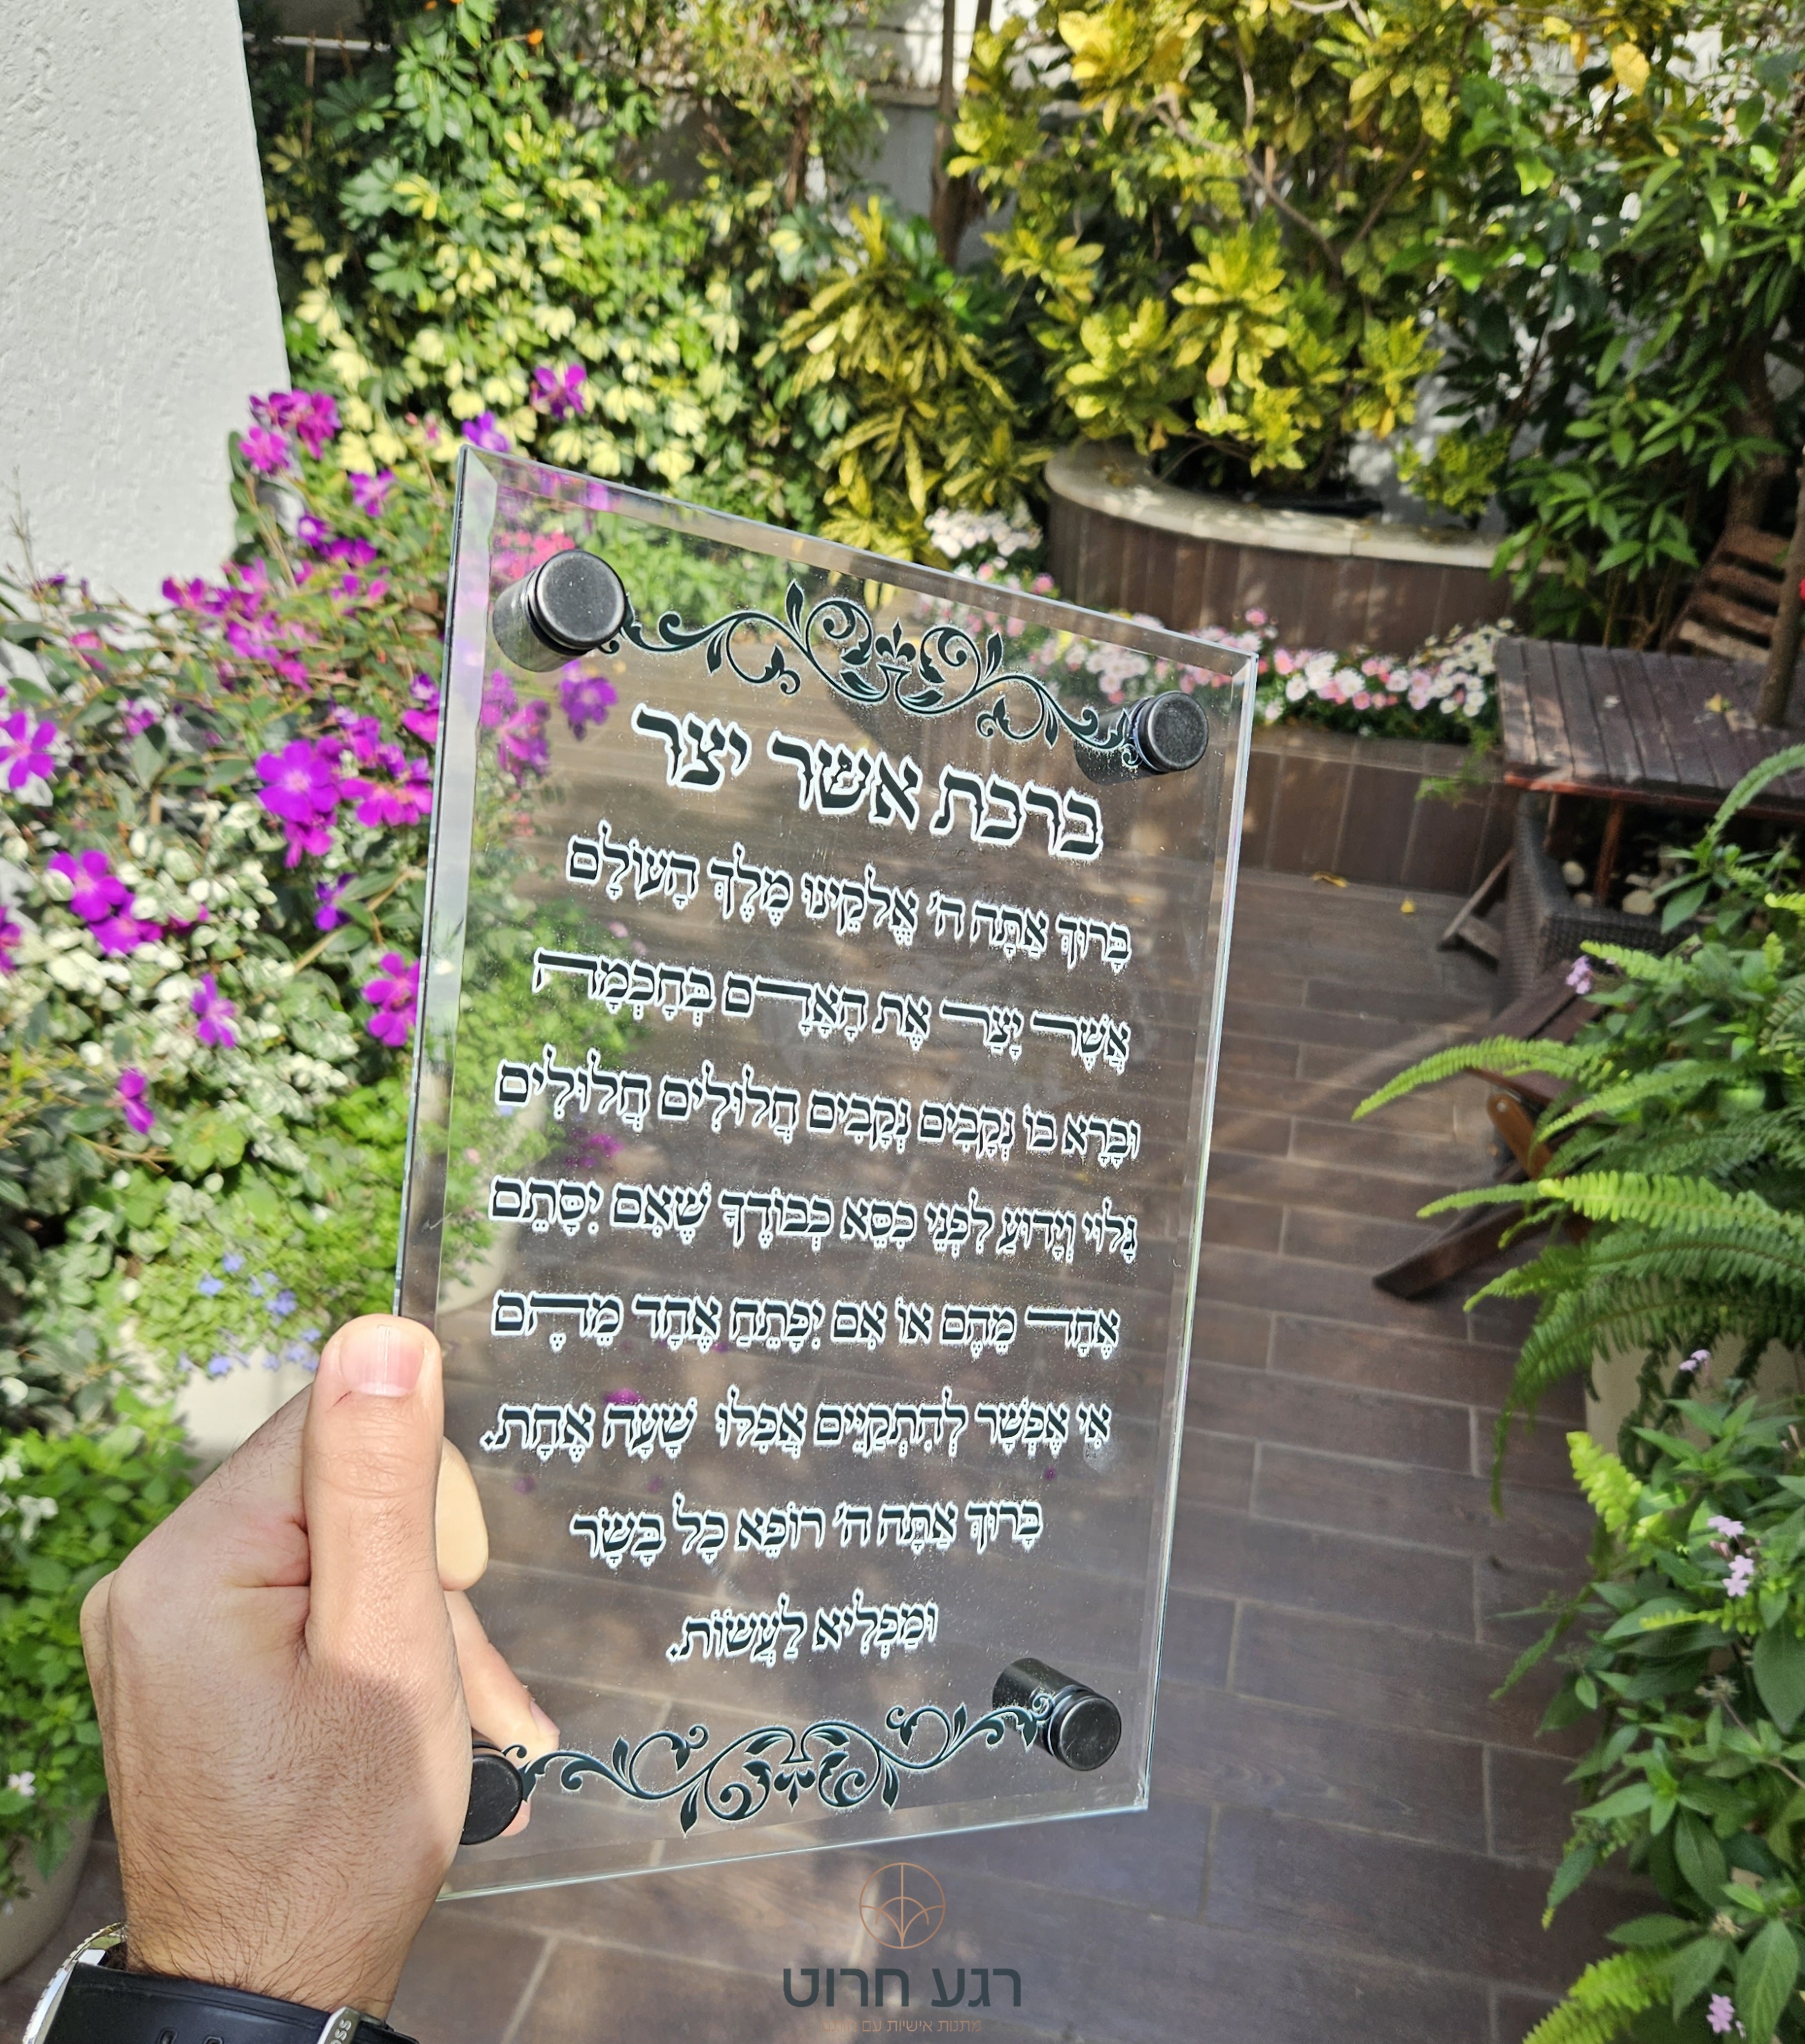 ברכת אשר יצר
בָּרוּךְ אַתָּה ה' אֱלֹקֵינוּ מֶלֶךְ הָעוֹלָם
אֲשֶׁר יָצַר אֶת הָאָדָם בְּחָכְמָה
וּבָרָא בוֹ נְקָבִים נְקָבִים חֲלוּלִים חֲלוּלִים
גָּלוּי וְיָדוּעַ לִפְנֵי כִסֵּא כְבוֹדֶךָ שֶׁאִם יִסָּתֵם
אֶחָד מֵהֶם אוֹ אִם יִפָּתֵחַ אֶחָד מֵהֶם
אִי אֶפְשַׁר לְהִתְקַיֵּים אֲפִלּוּ שָׁעָה אֶחָת.
בָּרוּךְ אַתָּה ה' רוֹפֵא כָל בָּשָׂר
וּמַפְלִיא לַעֲשׂוֹת.
רגע חרוט
מתנות אישיות עם